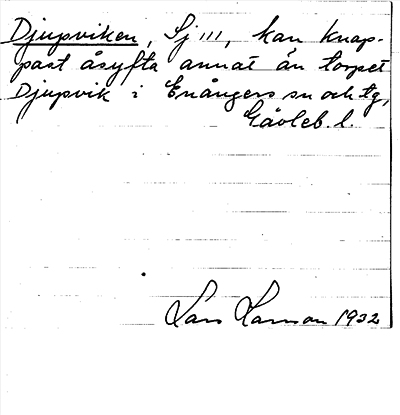 Djupviken, Sj III, kan knap-
past åsyfta annat än torpet
Djupvik i Enångers sn och tg,
Gävleb. l.
Lars Larsson 1932